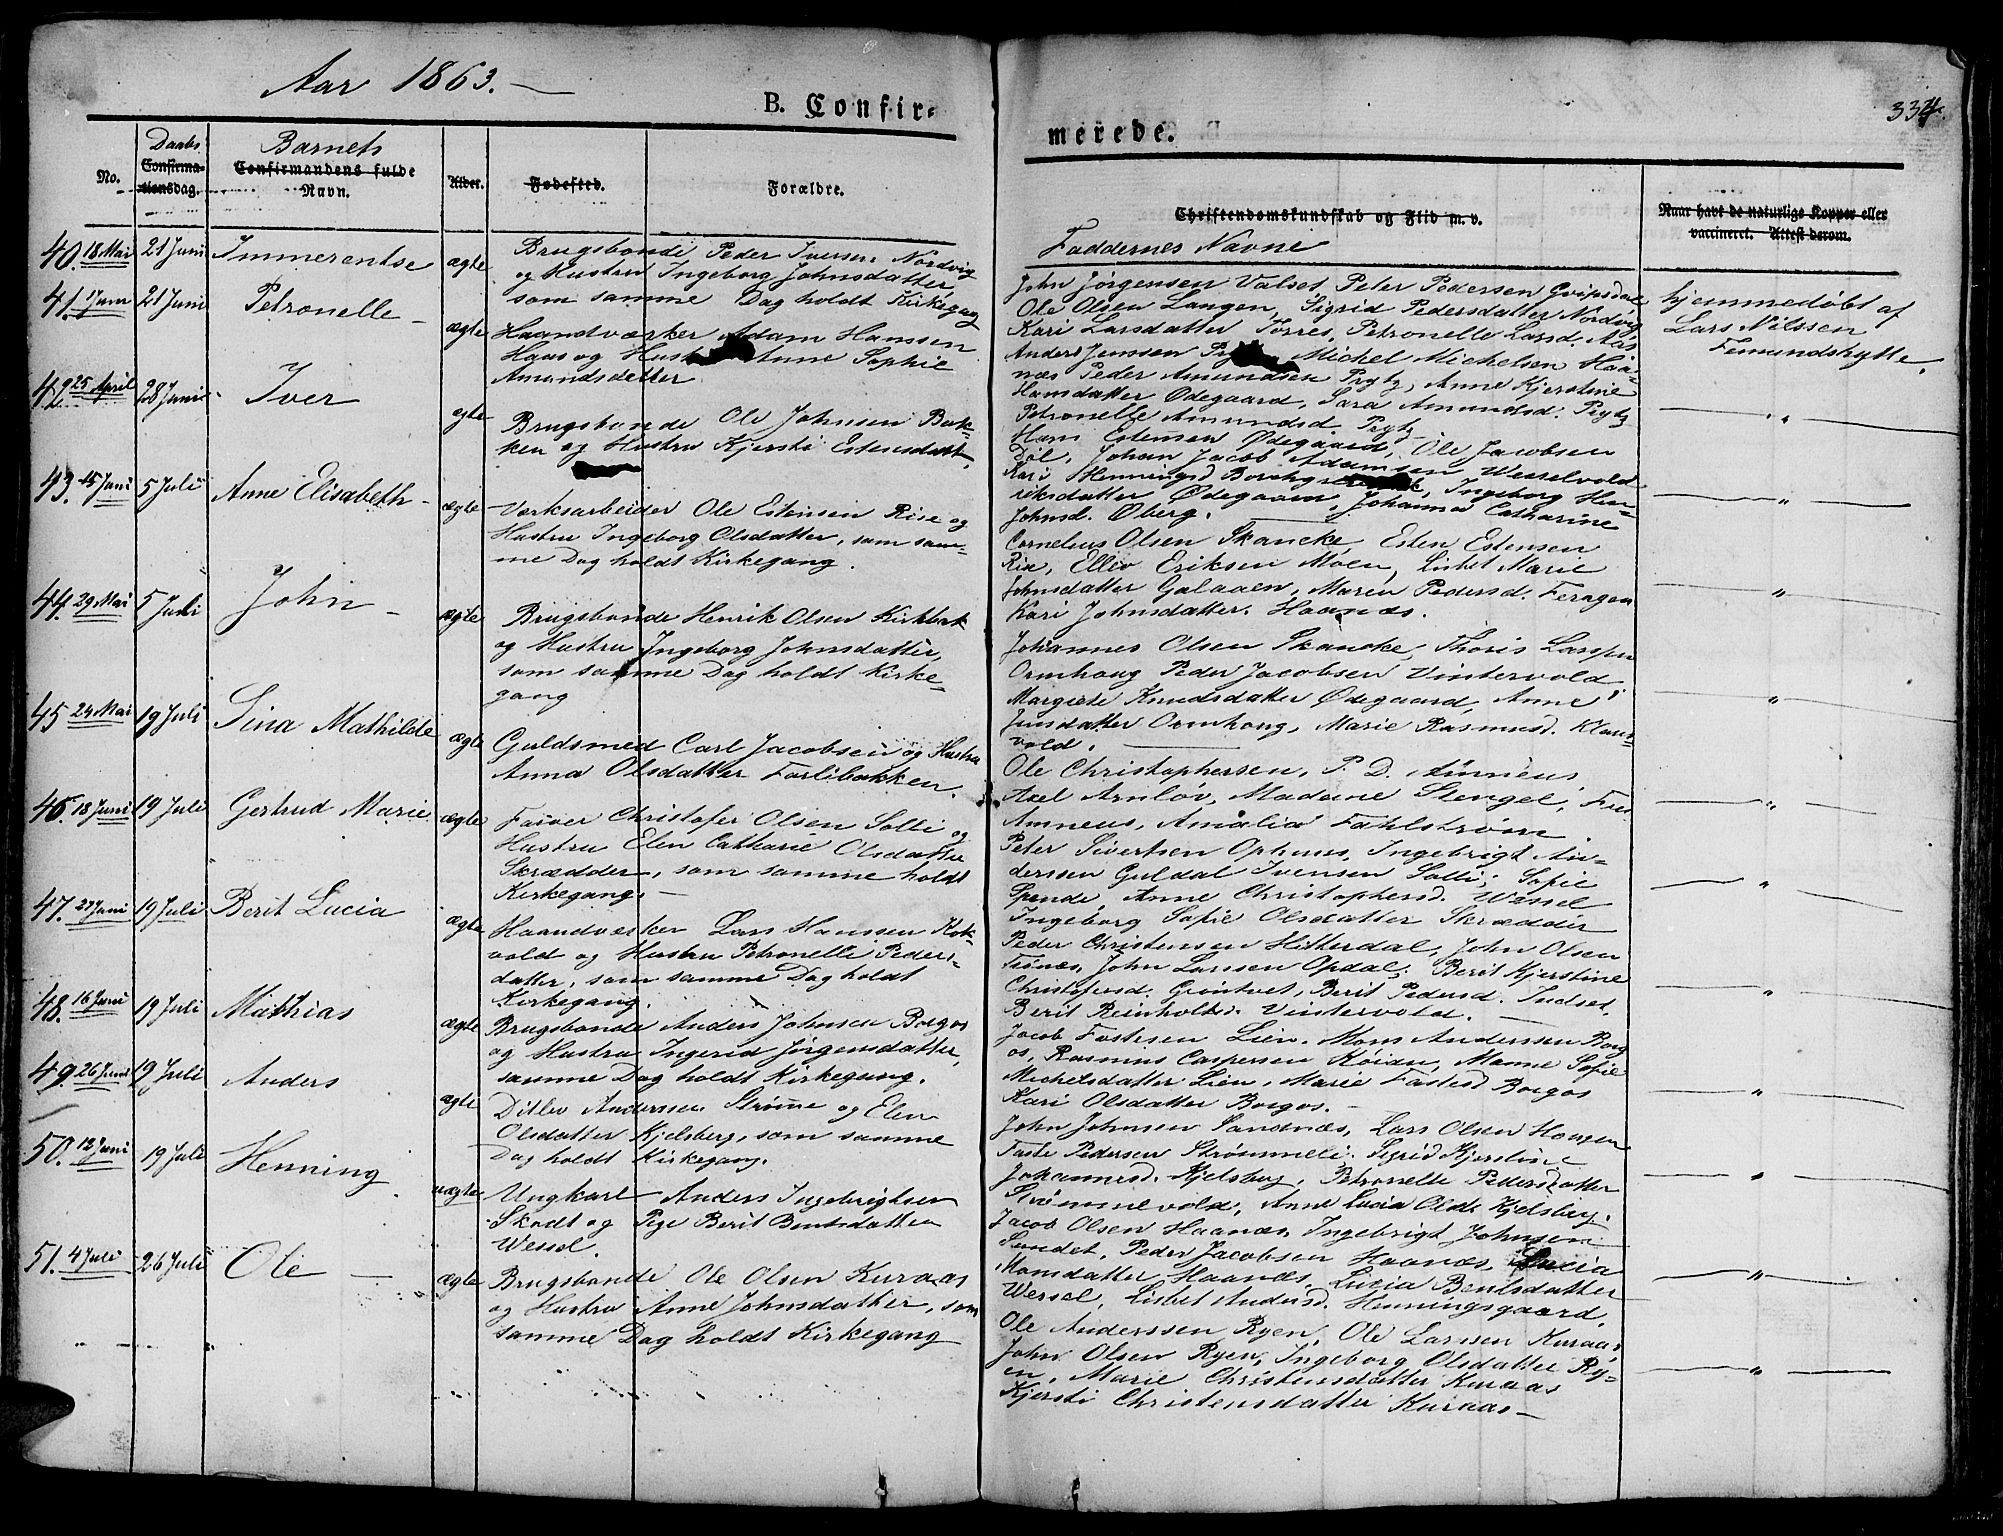 Aar 1863. —
B. Confir-
merede.
334.
No.
Daabs
Confirma-
tionsdag.
Barnets
Confirmandens fulde
Navn.
Alder.
Fødested.
Forældre.
Christendomskundskab og Flid m. v.
Faddernes Navne
Naar havt de naturlige Kopper eller
vaccineret. Attest derom.
40. 18 Mai 21 Juni Immerentse ægte
Brugsbonde Peder Iversen Nordvig
og Hustru Ingeborg Johnsdatter
som samme Dag holdt Kirkegang
John Jörgensen Valset Peter Pedersen
Ole Olsen Langen, Sigrid Pedersdatter Nordvig
Kari Larsdatter Torres, Petronelle Larsd. Aas
hjemmedöbt af
Lars Nilssen
Femundshytte.
41. 1 Juni 21 Juni Petronelle — ægte
Haandværker Adam Hanssen
Haas og Hustru Anne Sophie
Amundsdatter
Anders Jenssen Michel Michelsen Haa-
næs Peder Amundsen Prytz, Anne Kjerstine
Hansdatter Ødegaard, Sara Amundsd. Prytz
Petronelle Amundsd. Prytz
42. 25 April 28 Juni Iver ægte
Brugsbonde Ole Johnsen Bak-
ken og Hustru Kjersti Estensdatt.
Hans Estensen Ødegaard, Ole Jacobsen
Döl, Johan Jacob Adamsen Wesselvold
Kari Henningsd Ingeborg Hen-
riksdatter Ødegaard, Johanna Catharine
Johnsd. Øberg.
43. 15 Juni 5 Juli Anne Elisabeth — ægte
Værksarbeider Ole Estensen Rise og
Hustru Ingeborg Olsdatter, som sam-
me Dag holdt Kirkegang.
Cornelius Olsen Skancke, Esten Estensen
Rise, Ellev Eriksen Moen, Lisbet Marie
Johnsdatter Galaaen, Maren Pedersd. Feragen
Kari Johnsdatter Haanæs.
44. 29 Mai 5 Juli John — ægte
Brugsbonde Henrik Olsen Kirkbak
og Hustru Ingeborg Johnsdatter,
som samme Dag holdt Kirke-
gang
Johannes Olsen Skancke, Thoris Larssen
Ormhaug Peder Jacobsen Vintervold
Margrete Knudsdatter Ødegaard, Anne
Jensdatter Ormhaug, Marie Rasmusd.
vold.
45 24 Mai 19 Juli Sina Mathilde ægte
Guldsmed Carl Jacobsen og Hustru
Anna Olsdatter Farlibakken.
Ole Christophersen, P. D. Amneus,
Axel Arnlöv, Madame Stengel,
Amneus, Amalia Fahlstrøm
46. 18 Juni 19 Juli Gertrud Marie ægte
Farver Christofer Olsen Solli og
Hustru Elen Catharie Olsdatter
Skrædder, som samme holdt
Kirkegang. —
Peter Sivertsen Ophuus, Ingebrigt An-
derssen Guldal Ivensen Solli, Sofie
Spende, Anne Christophersd. Wessel
Ingeborg Sofie Olsdatter Skrædder
47. 27 Juni 19 Juli Berit Lucia ægte
Haandværker Lars Hanssen Kok-
vold og Hustru Petronelle Peders-
datter, som samme Dag holdt
Kirkegang.
Peder Christensen Hitterdal, John Olsen
John Larsen Opdal, Berit Kjerstine
Christofersd. Grøntvet, Berit Pedersd. Indset
Berit Reinholtsd. Vintervold. —
48. 16 Juni 19 Juli Mathias ægte
Brugsbonde Anders Johnsen Borgos
og Hustru Ingerid Jørgensdatter,
samme Dag holdt Kirkegang.
Jacob Fastesen Lien, Mons Anderssen Borg
os, Rasmus Caspersen Röien, Manne Sofie
Michelsdatter Lien, Marie Fastesd Borgos
Kari Olsdatter Borgos. —
49. 26 Juni 19 Juli Anders ægte
Ditlev Anderssen Strömme og Elen
Olsdatter Kjelsberg, som samme
Dag holdt Kirkegang.
John Johnsen Sandnæs, Lars Olsen Haugen
Faste Pedersen Strömmeli, Sigrid Kjerstine
Johannesd. Kjelsberg, Petronelle Pedersdatter
Strömmevold, Anne Lucia Olsdt Kjelsberg.
50. 12 Juni 19 Juli Henning uægte
Ungkarl Anders Ingebrigtsen
Skodt og Pige Berit Bentsdatter
Wessel.
Jacob Olsen Haanæs, Ingebrigt Johnsen
Sundet, Peder Jacobsen Haanæs, Lucia
Monsdatter Haanæs, Lucia Bentsdatter
Wessel, Lisbet Andersd. Henningsgaard,
51. 4 Juli 26 Juli Ole — ægte
Brugsbonde Ole Olsen Kuraas
og Hustru Anne Johnsdatter, som
samme Dag holdt Kirkegang
Ole Anderssen Ryen, Ole Larssen Kuraas
John Olsen Ryen, Ingeborg Olsdatter Ry-
en, Marie Christensdatter Kuraas
Kjersti Christensdatter Kuraas —